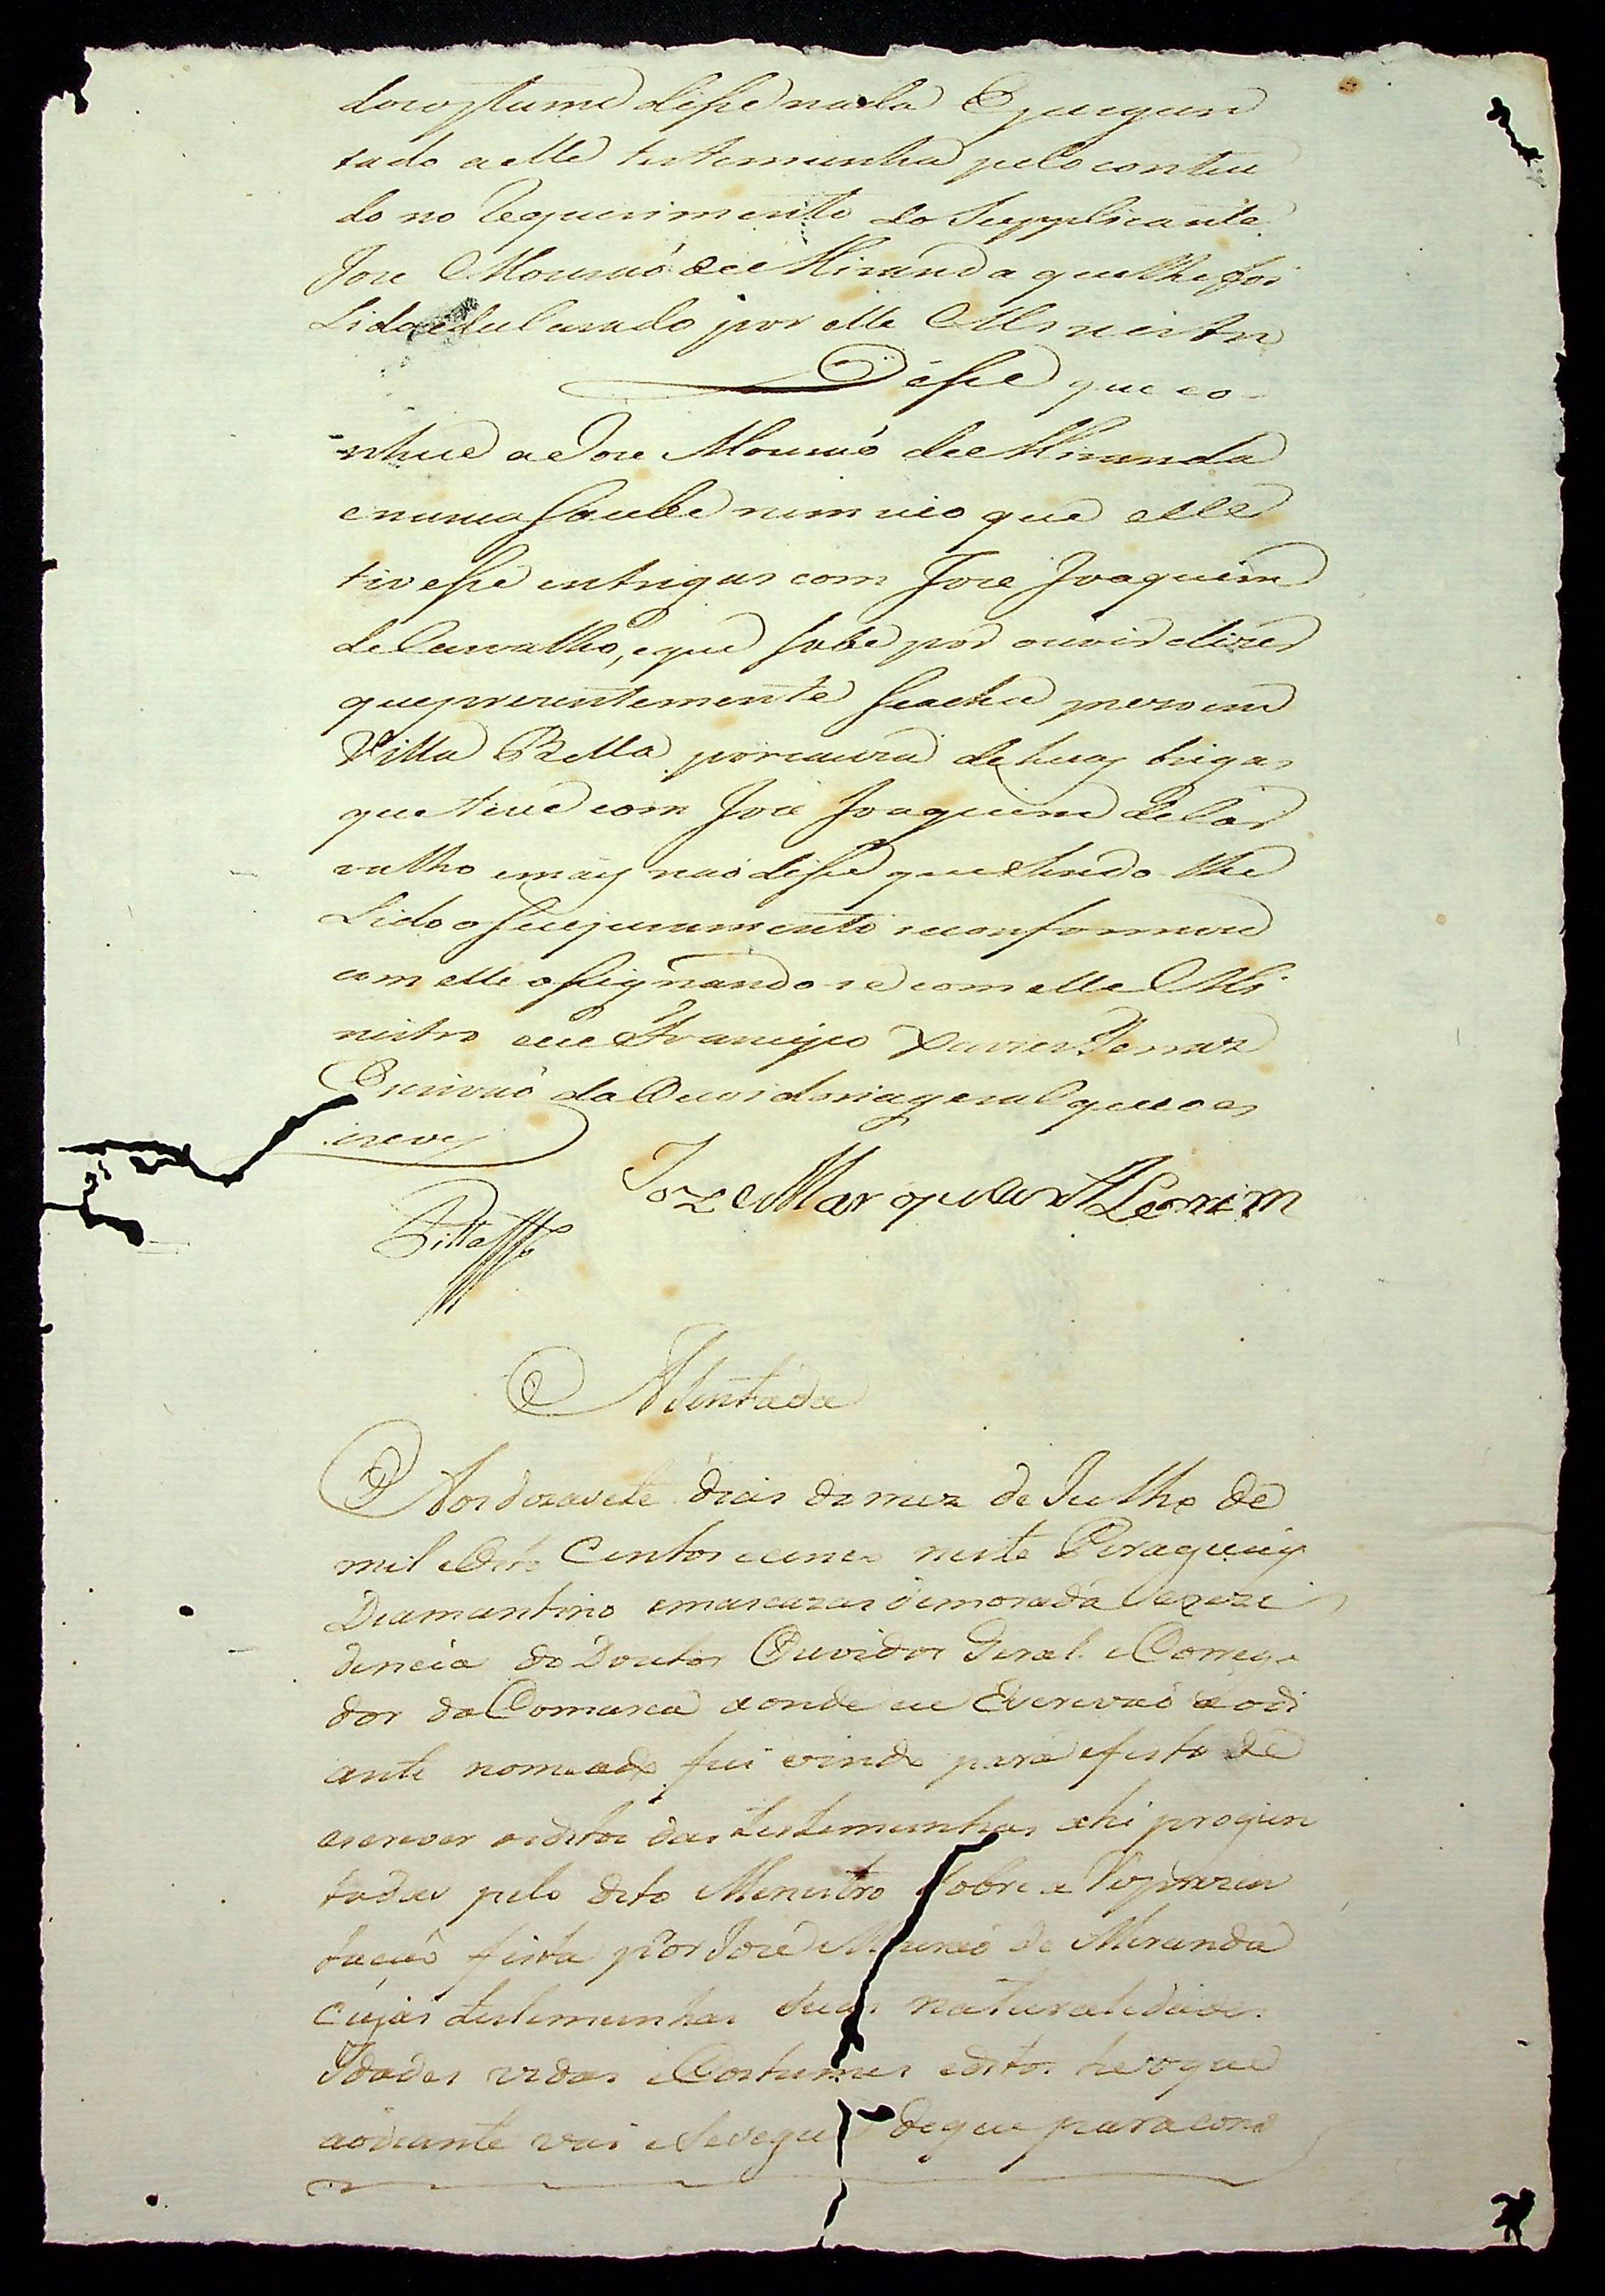 do costume disse nada E pergun
tado a elle testemunha pelo conteu
do no Requerimento do Supplicante
Joze Mouraó de Miranda que lhe foi
Lido e declarado por elle Ministro
Disse que co-
nhece a Joze Mouraó de Miranda
e nunca soube nem vio que elle
tivesse intrigas com Joze Joaquim
de Carvalho, e que sabe por ouvir dizer
que prezentemente se acha prezo em
Villa Bella por cauza de huas brigas
que teve com Joze Joaquim de Car
valho e mais naó disse que sendo lhe
Lido o seu juramento se conformou
com elle assignando-se com elle Mi
nistro e eu Francisco Xavier
Escrivaó da Ouvidoria geral que o es
crevy
Joze Marques
Pitta
Asentada
Aos dezasete dias do mez de Julho de
mil e Oito Centos e cinco neste Paraguay
Diamantino em as cazas de morada e rezi
dencia do Doutor Ouvidor Geral e Correge
dor da Comarca aonde eu Escrivaó ao di
ante nomeado fui vindo para efeito de
escrever os ditos das testemunhas ahi pregun
tadas pelo dito Ministro sobre a Reprezen
tacaó feita por Joze Mouraó de Miranda
cujas testemunhas suas naturalidades
Idades vidas e Costumes e ditos he o que
ao diante vai e se segue de que para cons